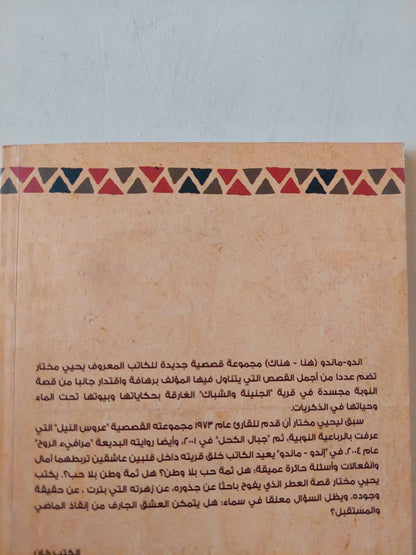 اندو-ماندو (هنا - هناك) مجموعة قصصية جديدة للكاتب المعروف يحيي مختار
تضم عددا من أجمل القصص التي يتناول فيها المؤلف برهافة واقتدار جانبا من قصة
النوبة مجسدة في قرية "الجنينة والشباك" الغارقة بحكاياتها وبيوتها تحت الماء
وحياتها في الذكريات.
سبق ليحيي مختار أن قدم للقارئ عام ١٩٧٣ مجموعته القصصية "عروس النيل" التي
عرفت بالرباعية النوبية، ثم "جبال الكحل" في ٢٠٠١، وأيضا روايته البديعة "مرافيء الروح"
عام ٢٠٠٤. في "إندو - ماندو" يعيد الكاتب خلق قريته داخل قلبين عاشقين تربطهما آمال
وانفعالات وأسئلة حائرة عميقة: هل ثمة حب بلا وطن؟ هل ثمة وطن بلا حب؟. يكتب
يحيي مختار قصة العطر الذي يفوح باحثا عن جذوره، عن زهرته التي بترت ، عن حقيقة
وجوده. ويظل السؤال معلقا في سماء: هل يتمكن العشق الجارف من إنقاذ الماضي
والمستقبل؟